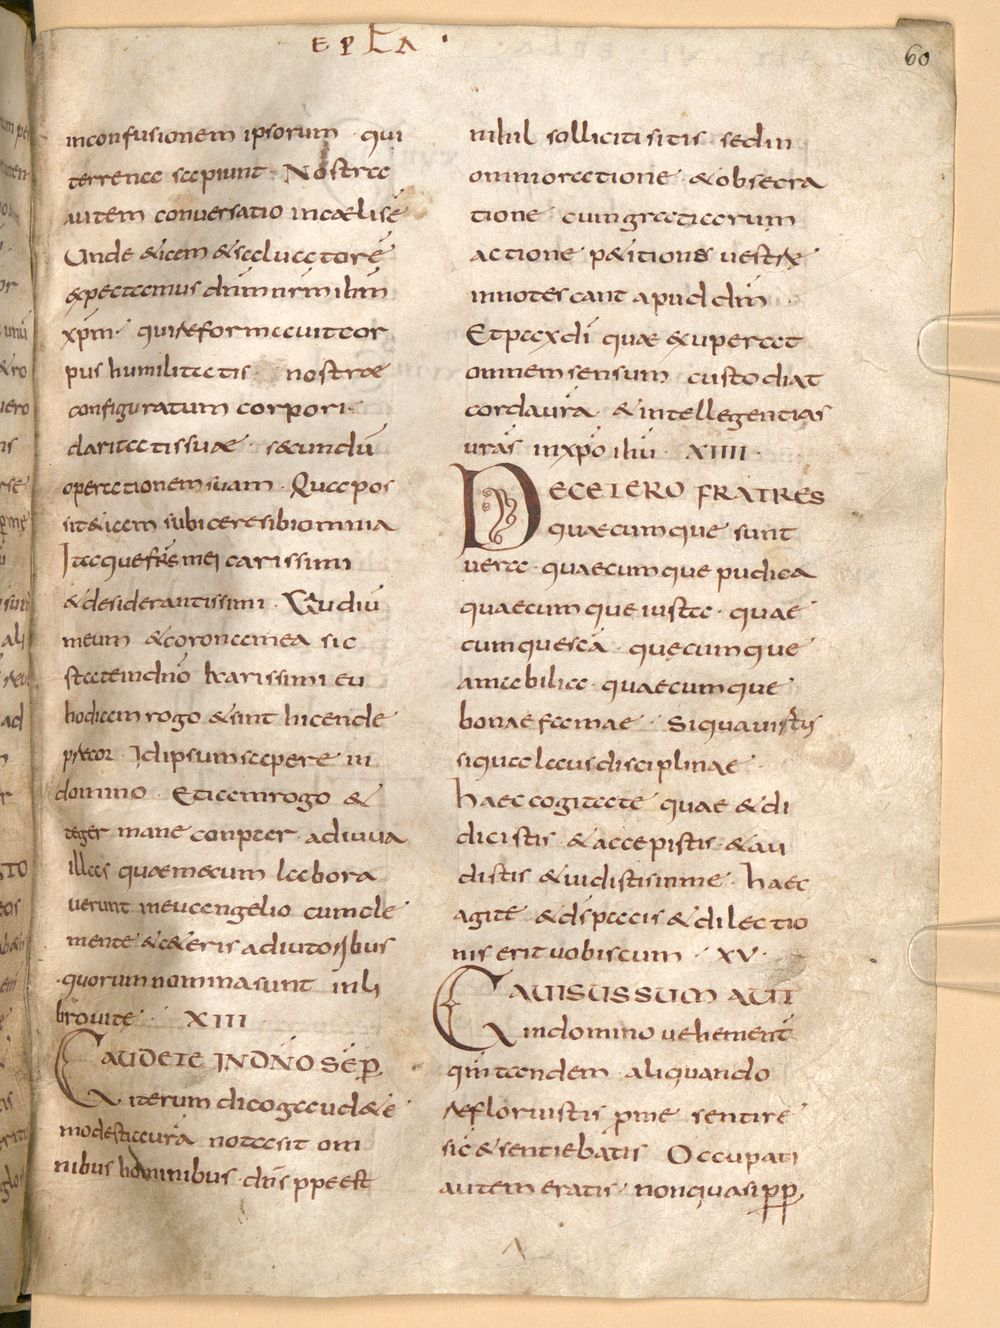 EPLA
60
inconfusionem ipsorum · qui
terrena sapiunt · Nostra
autem conversatio incælis ē
Unde &iam &salvatorē
expectamus dn̄m nr̄m ih̄m
xp̄m · qui reformavit cor
pus humilitatis nostræ
configuratum corpori
claritatis suæ · secundū
operationem suam · Qua pos
sit &iam subicere sibi omnia
Itaque fr̄s mei carissimi
&desiderantissimi · Gaudiū
meum &corona mea sic
state in dn̄o karissimi eu
hodiam rogo &sinthicen de
præcor · Idipsum sapere in
domino · Etiam rogo &
te germane conpar · adiuva
illas quæ mecum labora
verunt in evangelio cum cle
mente &c&eris adiutoribus
quorum nomina sunt in li
bro vitę · XIII
GAUDETE IN DN̄O SEP̄
iterum dico gaud&e
modestia vr̄a nota sit om
nibus hominibus · dn̄s ppe est
nihil solliciti sitis · sed in
omni oratione · &obsecra
tione cum gratiarum
actione p&itiones vestræ
innotescant apud dm̄
Et pax dī quæ exuperat
omnem sensum custodiat
corda vr̄a &intellegentias
vr̄as in xp̄o ih̄u · XIIII ·
DE CETERO FRATRES
quaecumque sunt
vera · quaecumque pudica
quaecumque iusta · quae
cumque sc̄a · quęcumque
amabilia · quaecumque
bonae famae · Siqua virtus
siqua laus disciplinae ·
haec cogitate quae &di
dicistis &accepistis · &au
distis &vidistis in me · haec
agite &ds̄ pacis &dilectio
nis erit vobiscum · XV ·
GAVISUS SUM AUT
in domino vehement
qm̄ tandem aliquando
refloruistis p me sentire
sic &sentiebatis Occupati
autem eratis · non quasi pp